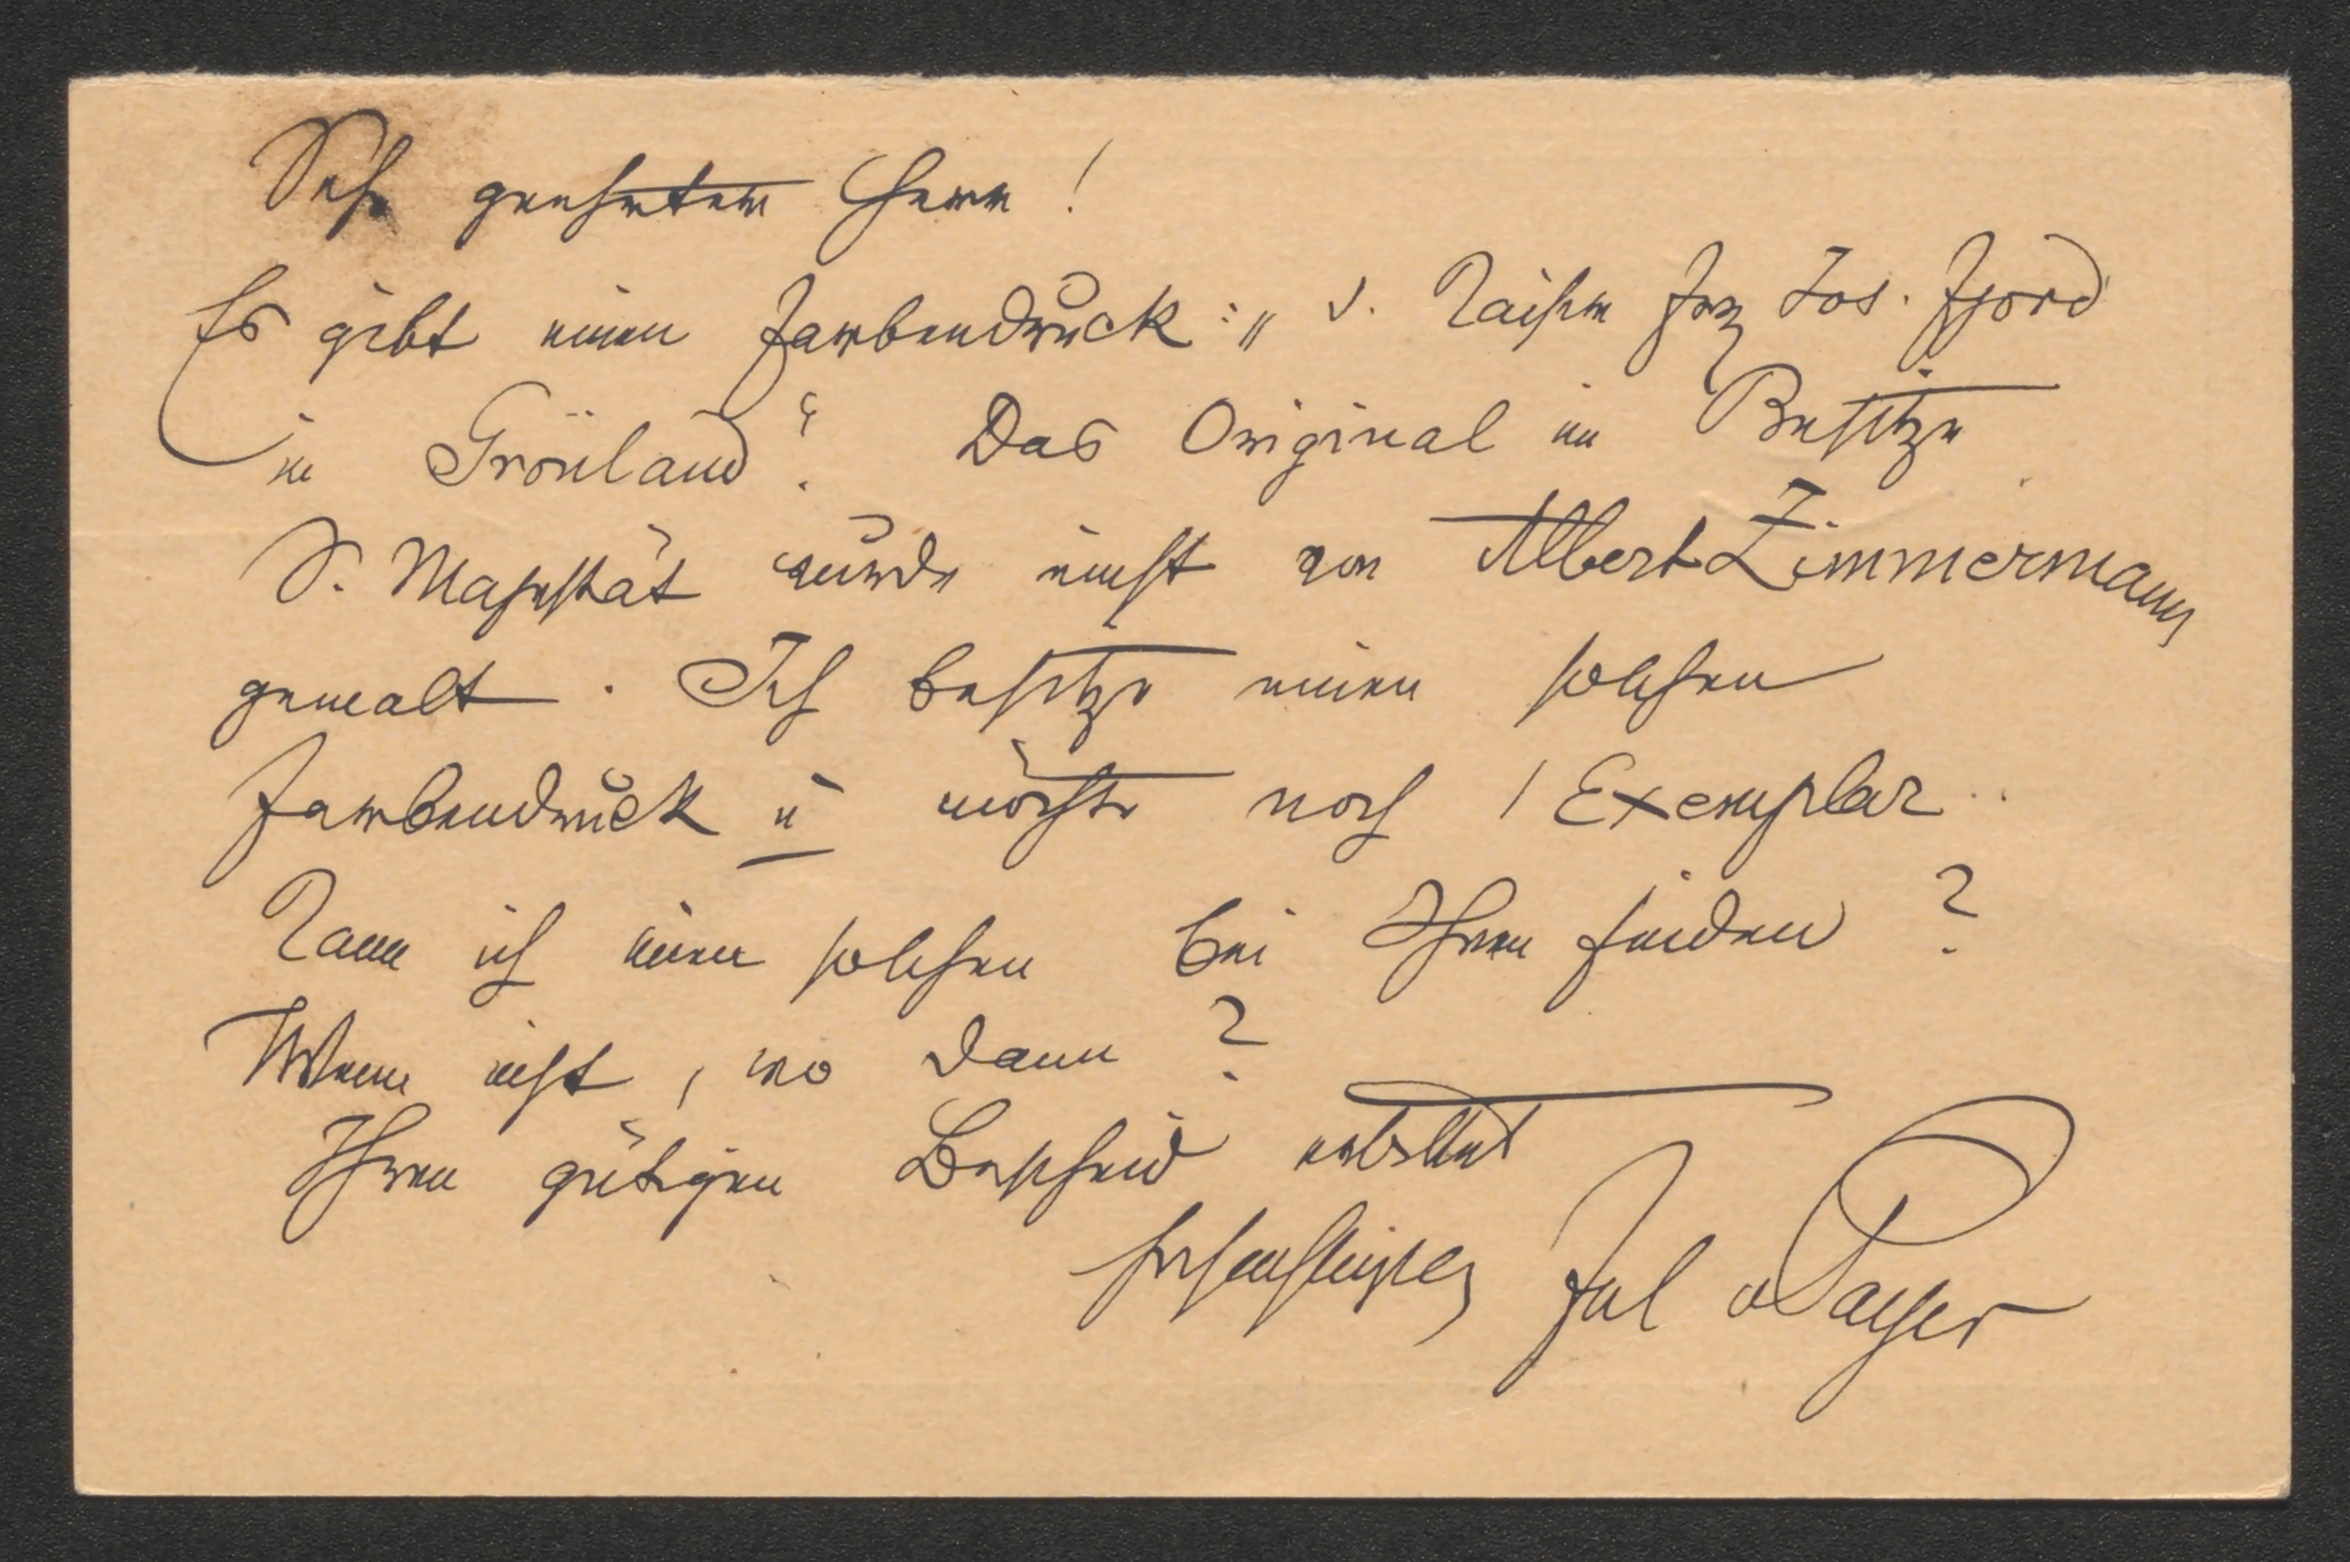 Sehr geehrter Herr!
Es gibt einen Farbendruck: „d. Kaiser Frz Jos. Fjord
in Grönland“. Das Original im Besitze
S. Majestät wurde einst von Albert Zimmermann
gemalt. Ich besitze einen solchen
Farbendruck u möchte noch 1 Exemplar.
Kann ich einen solchen bei Ihnen finden?
Wenn nicht, wo dann?
Ihren gütigen Bescheid erbittet
hochachtungsvoll Jul v Payer